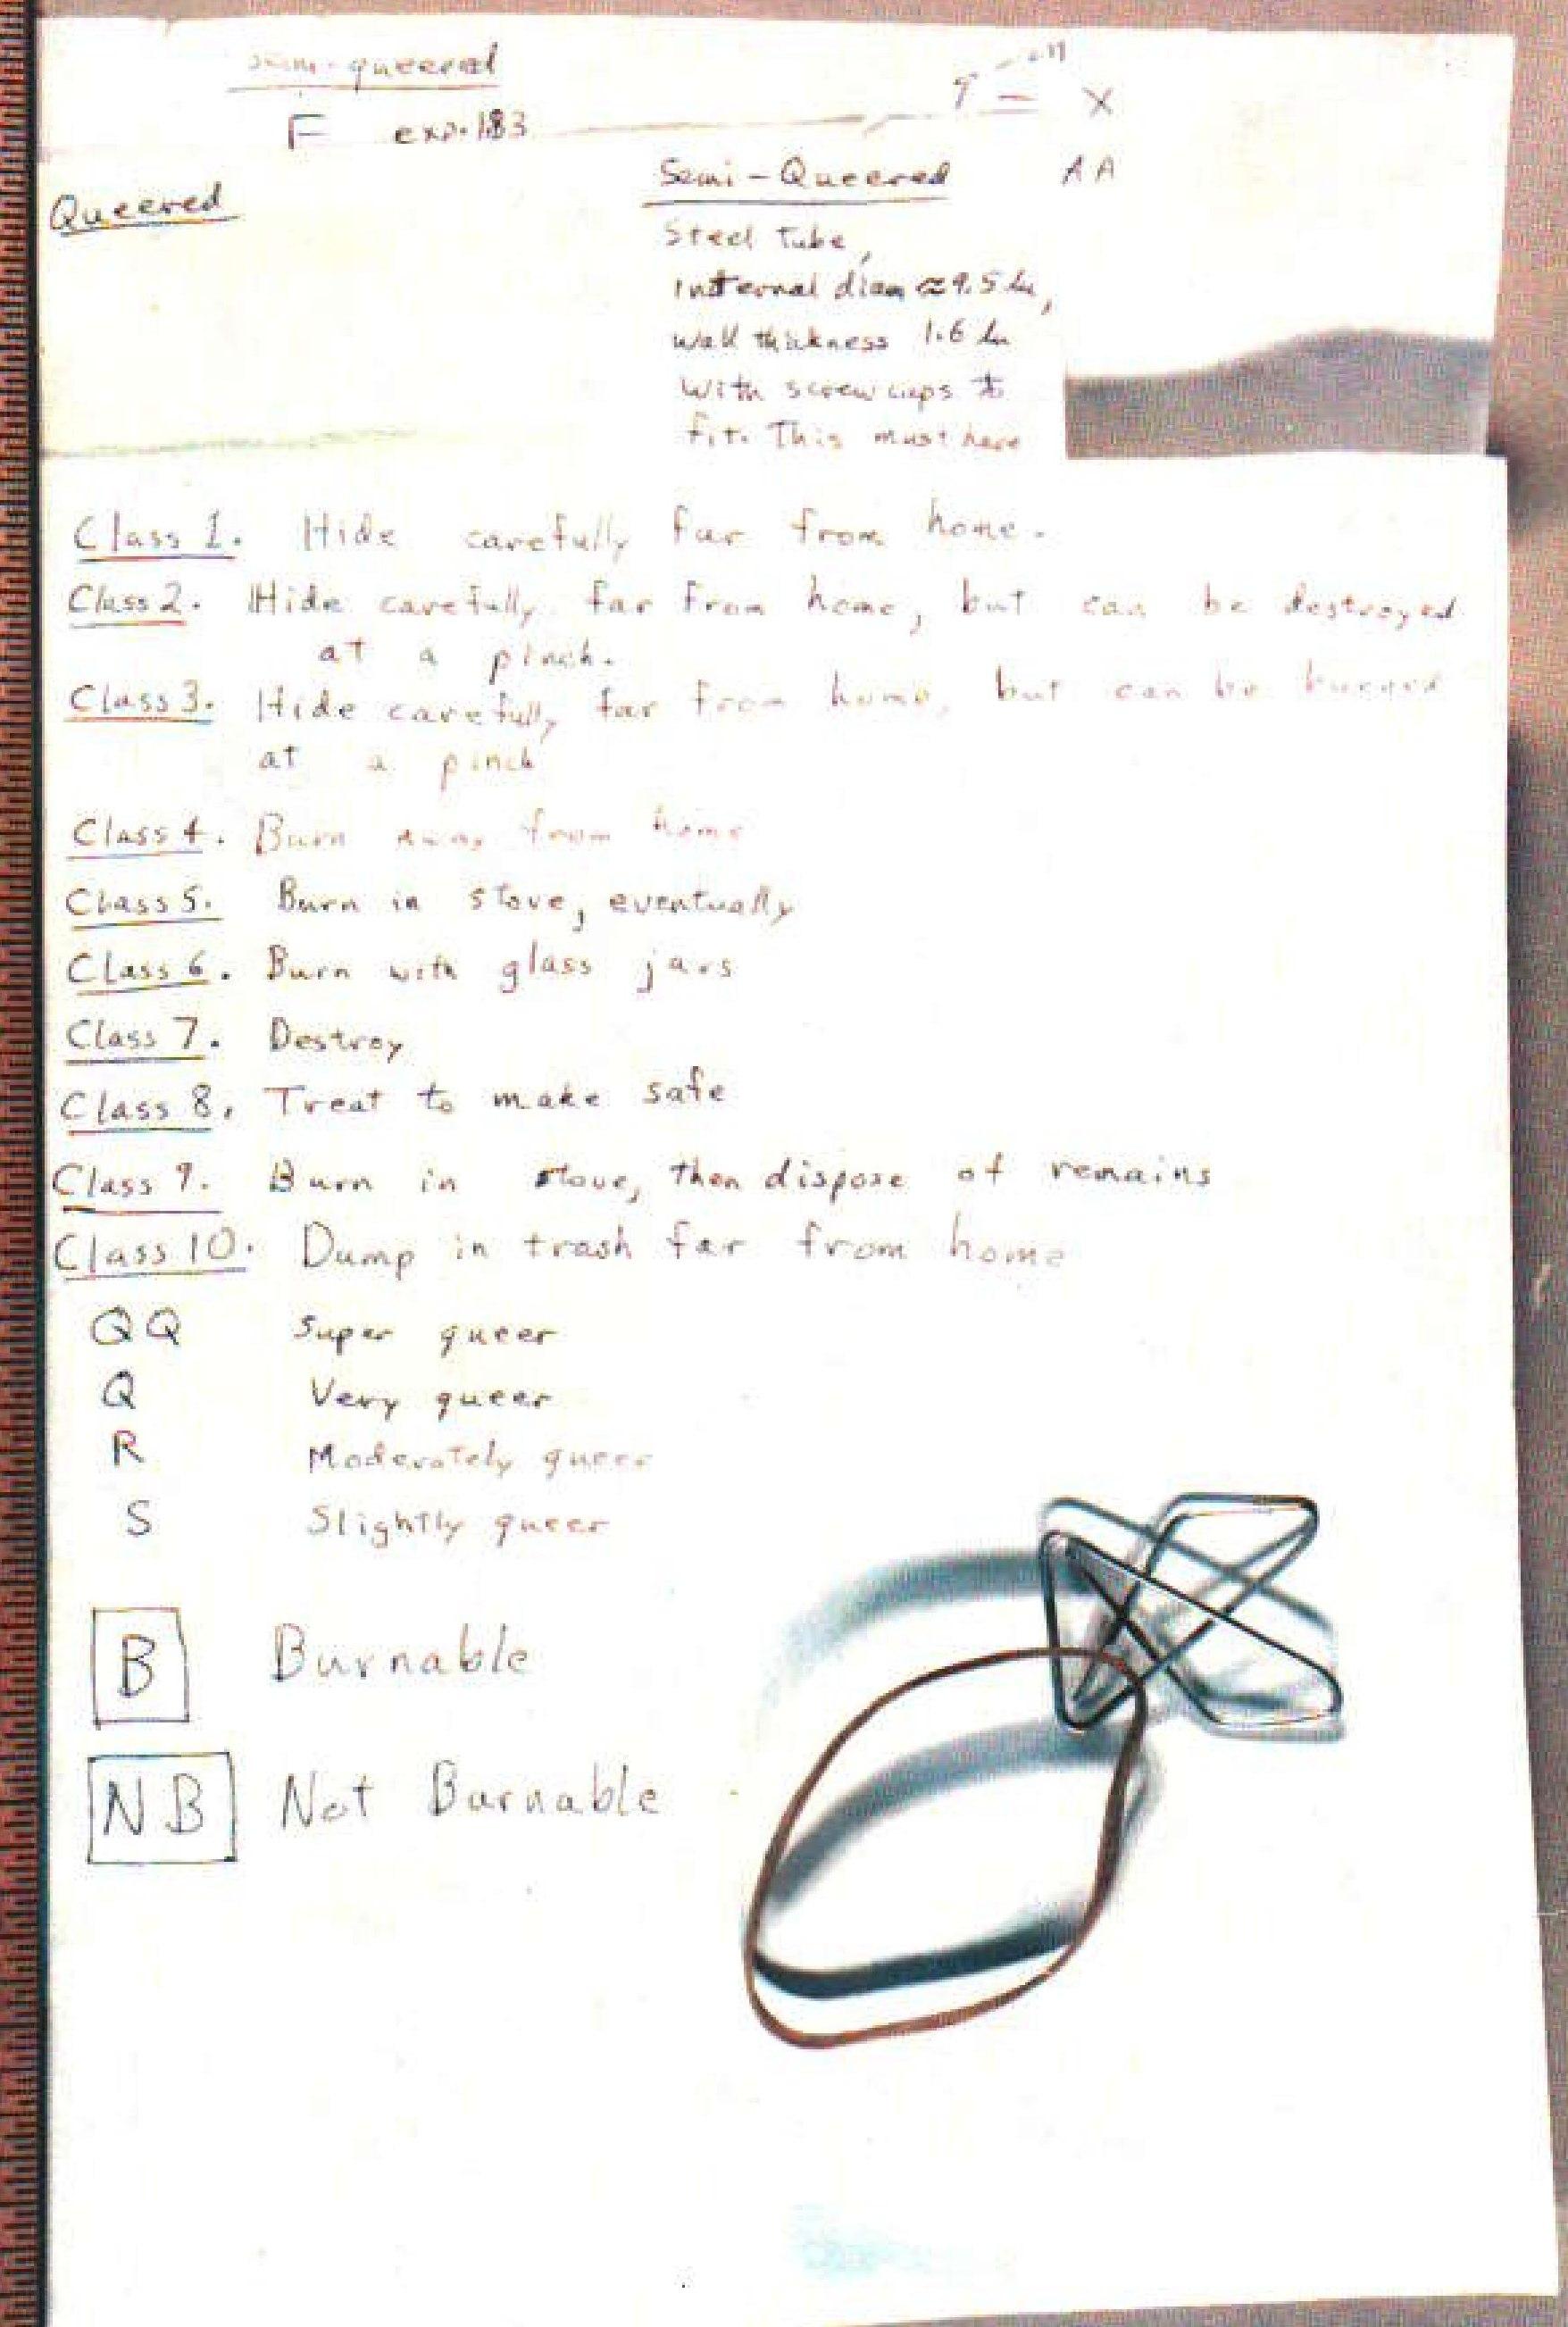 Semi-queered
F exp. 183
X
Queered
Semi-Queered AA
Steel tube,
internal diam ≈ 9.5 Ln,
wall thickness 1.6 Ln
with screw caps to
fit. This must have
Class 1. Hide carefully far from home.
Class 2. Hide carefully far from home, but can be destroyed
at a pinch.
Class 3. Hide carefully far from home, but can be burned
at a pinch
Class 4. Burn away from home
Class 5. Burn in stove, eventually
Class 6. Burn with glass jars
Class 7. Destroy
Class 8. Treat to make safe
Class 9. Burn in stove, then dispose of remains
Class 10. Dump in trash far from home
QQ Super queer
Q Very queer
R Moderately queer
S Slightly queer
B Burnable
NB Not Burnable